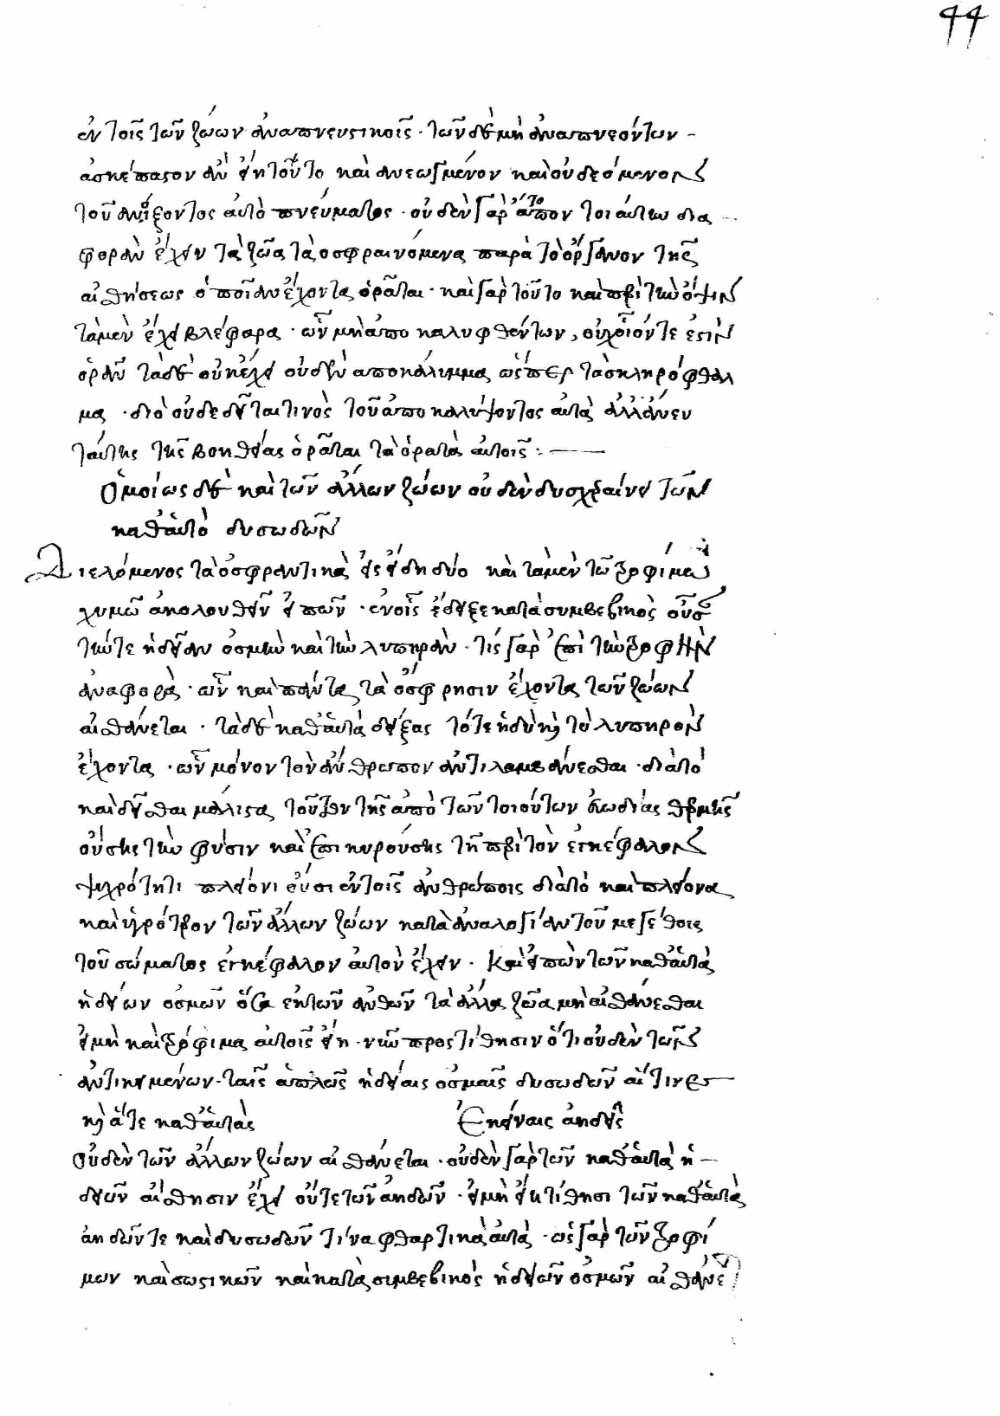 44
ἐν τοῖς τῶν ζώων ἀναπνευστικοῖς · τῶν δὲ μὴ ἀναπνεόντων
ἀσκέπαστον ἂν εἴη τοῦτο καὶ ἀνεωγμένον καὶ οὐ δεόμενον
τοῦ ἀνοίξοντος αὐτὸ πνεύματος · οὐδὲν γὰρ ἄτοπον τοιαύτην δια
φορὰν ἔχειν τὰ ζῶα τὰ ὀσφραινόμενα παρὰ τὸ ὄργανον τῆς
αἰσθήσεως ὁποῖαν ἔχοντα ὁρᾶται · καὶ γὰρ τοῦτο καὶ περὶ τὴν ὄψιν
τὰ μὲν ἔχει βλέφαρα · ὧν μὴ ἀποκαλυφθέντων, οὐχ οἷόντε ἐστὶν
ὁρᾶν τὰ δὲ οὐκ ἔχει οὐδὲν ἀποκάλυμμα ὥσπερ τὰ σκληρόφθαλ
μα · διὸ οὐδε δεῖται τινὸς τοῦ ἀποκαλύψοντος αὐτὰ ἀλλ' ἄνευ
ταύτης τῆς βοηθείας ὁρᾶται τὰ ὁρατὰ αὐτοῖς :
Ὁμοίως δὲ καὶ τῶν ἄλλων ζώων οὐδὲν δυσχεραίνει τῶν
καθ' αὑτὸ δυσωδῶν
Διελόμενος τὰ ὀσφραντικὰ εἰς εἴδη δύο καὶ τὰ μὲν τῶ τροφίμω
χυμῶ ἀκολουθεῖν εἰπὼν · ἐν οἷς ἔδειξε κατὰ συμβεβηκὸς οὖσαν
τήν τε ἡδεῖαν ὀσμὴν καὶ τὴν λυπηράν · τίς γὰρ ἐπὶ τὴν τροφὴν
ἀναφορά · ὧν καὶ πάντα τὰ ὄσφρησιν ἔχοντα τῶν ζώων
αἰσθάνεται · τὰ δὲ καθ' αὑτὰ δείξας τό τε ἡδὺ καὶ τὸ λυπηρὸν
ἔχοντα · ὧν μόνον τὸν ἄνθρωπον ἀντιλαμβάνεσθαι · διὰ τὸ
καὶ δεῖσθαι μάλιστα τοῦτον τῆς ἀπὸ τῶν τοιούτων εὐωδίας θερμῆς
οὔσης τὴν φύσιν καὶ ἐπικιρνούσης τῆ περὶ τὸν ἐγκέφαλον
ψυχρότητι πλείονι οὔσῃ ἐν τοῖς ἀνθρώποις διὰ τὸ καὶ πλείονα
καὶ ὑγρότερον τῶν ἄλλων ζώων κατὰ ἀναλογίαν τοῦ μεγέθους
τοῦ σώματος ἐγκέφαλον αὐτὸν ἔχειν · Καὶ εἰπὼν τῶν καθ' αὑτὰ
ἡδειῶν ὀσμῶν οἷα ἐκ τῶν ἀνθῶν τὰ ἄλλα ζῶα μὴ αἰσθάνεσθαι
εἰ μὴ καὶ τρόφιμα αὐτοῖς εἴη · νῦν προστίθησιν ὅτι οὐδὲν τῶν
ἀντικειμένων · ταῖς ἁπλῶς ἡδείαις ὀσμαῖς δυσωδῶν αἵτινες
καὶ αὗται καθ' αὑτὰς ἐκείναις ἀηδεῖς
Οὐδὲν τῶν ἄλλων ζώων αἰσθάνεται · οὐδὲν γὰρ τῶν καθ' αὑτὰ ἡ
δειῶν αἴσθησιν ἔχει οὔτε τῶν ἀηδῶν · εἰ μὴ ἐκτίθησι τῶν καθ' αὑτὰ
ἀηδῶν τε καὶ δυσωδῶν τινα φθαρτικὰ αὐτὰ · ὡς γὰρ τῶν τροφί
μων καὶ σωστικῶν καὶ κατὰ συμβεβηκὸς ἡδειῶν ὀσμῶν αἰσθάνε